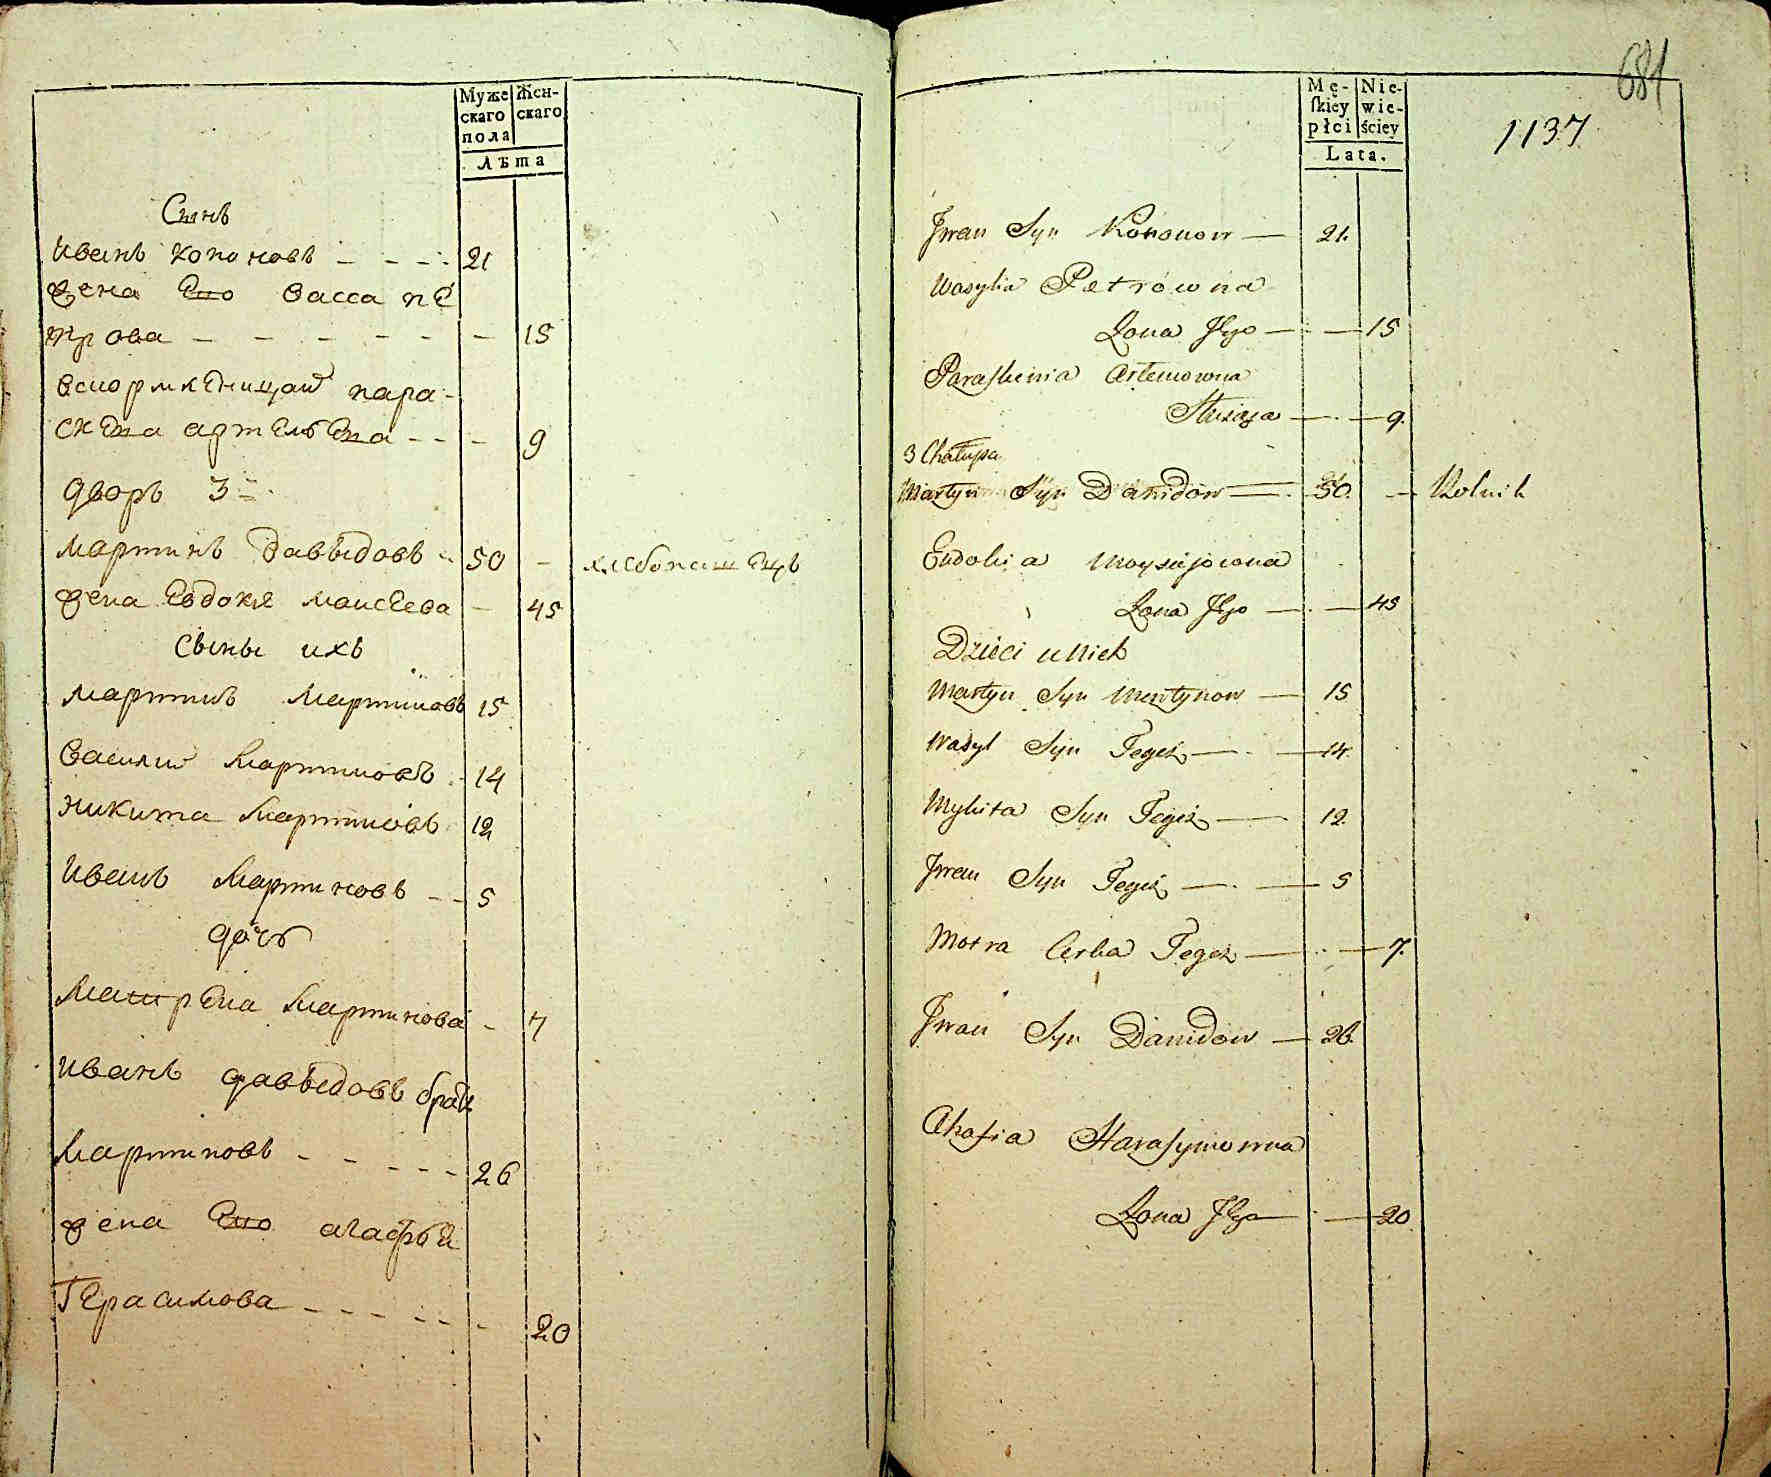 Муже
скаго
пола
Жен-
скаго
Лѣта
Сынъ
Иванъ Кононовъ - - - - 21
жена Ево Васса пе
трова - - - - - - 15
Вспормленицаи пара-
скева артемьева - - - 9
дворъ 3й
Мартинъ Давыдовъ - 50 - хлебопашецъ
жена Евдокея Маисеева - 45
Сыны ихъ
Мартинъ Мартиновъ 15
Василий Мартиновъ - 14
Никита Мартиновъ 12
Иванъ Мартиновъ - - 5
дочь
Матрена Мартинова - 7
Иванъ давыдовъ братъ
Мартиновъ - - - - - 26
жена Ево агафья
Герасимова - - - - - - 20
681
1137
Mę-
skiey
płci
Nie-
wie-
ściey
Lata.
Jwan Syn Kononow — 21.
Wasylia Petrówna
Żona Jego — — 15
Paraskewia Artemowna
Służąca — — 9.
3 Chałupa
Martyn Syn Dawidow — 50. — Rolnik
Eudokia Moysiejowna
Żona Jego — — 45
Dzieci u Nich
Martyn Syn Martynow — 15
Wasyl Syn Tegoż — — 14.
Mykita Syn Tegoż — 12.
Jwan Syn Tegoż — — 5
Motra Corka Tegoż — — 7.
Jwan Syn Dawidow — 26.
Akafia Harasymowna
Żona Jego — — 20